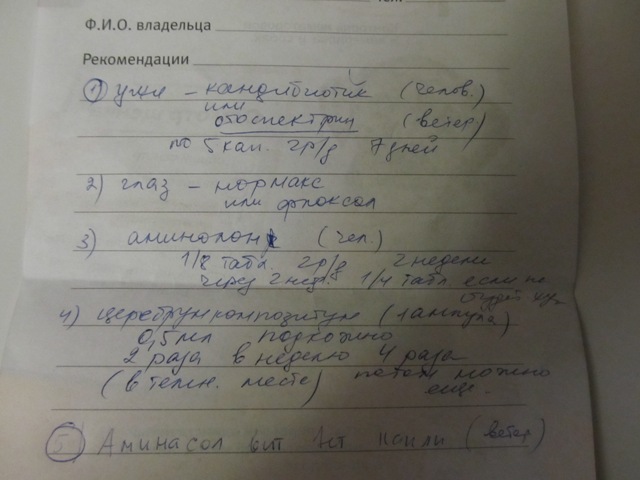 Ф.И.О. владельца
Рекомендации
1) уши – кандибиотик (челов.)
или
отоспектрин (ветер)
по 5 кап. 2р/д 7 дней
2) глаз – нормакс
или флоксал
3) аминолон (чел.)
1/8 табл. 2р/д 2 недели
через 2 нед. 1/4 табл если не
будет
4) церебрум композитум (1 ампула)
0,5 мл подкожно
2 раза в неделю 4 раза
(в темн. месте) потом можно
еще.
5) Аминасол вит капли (ветер)